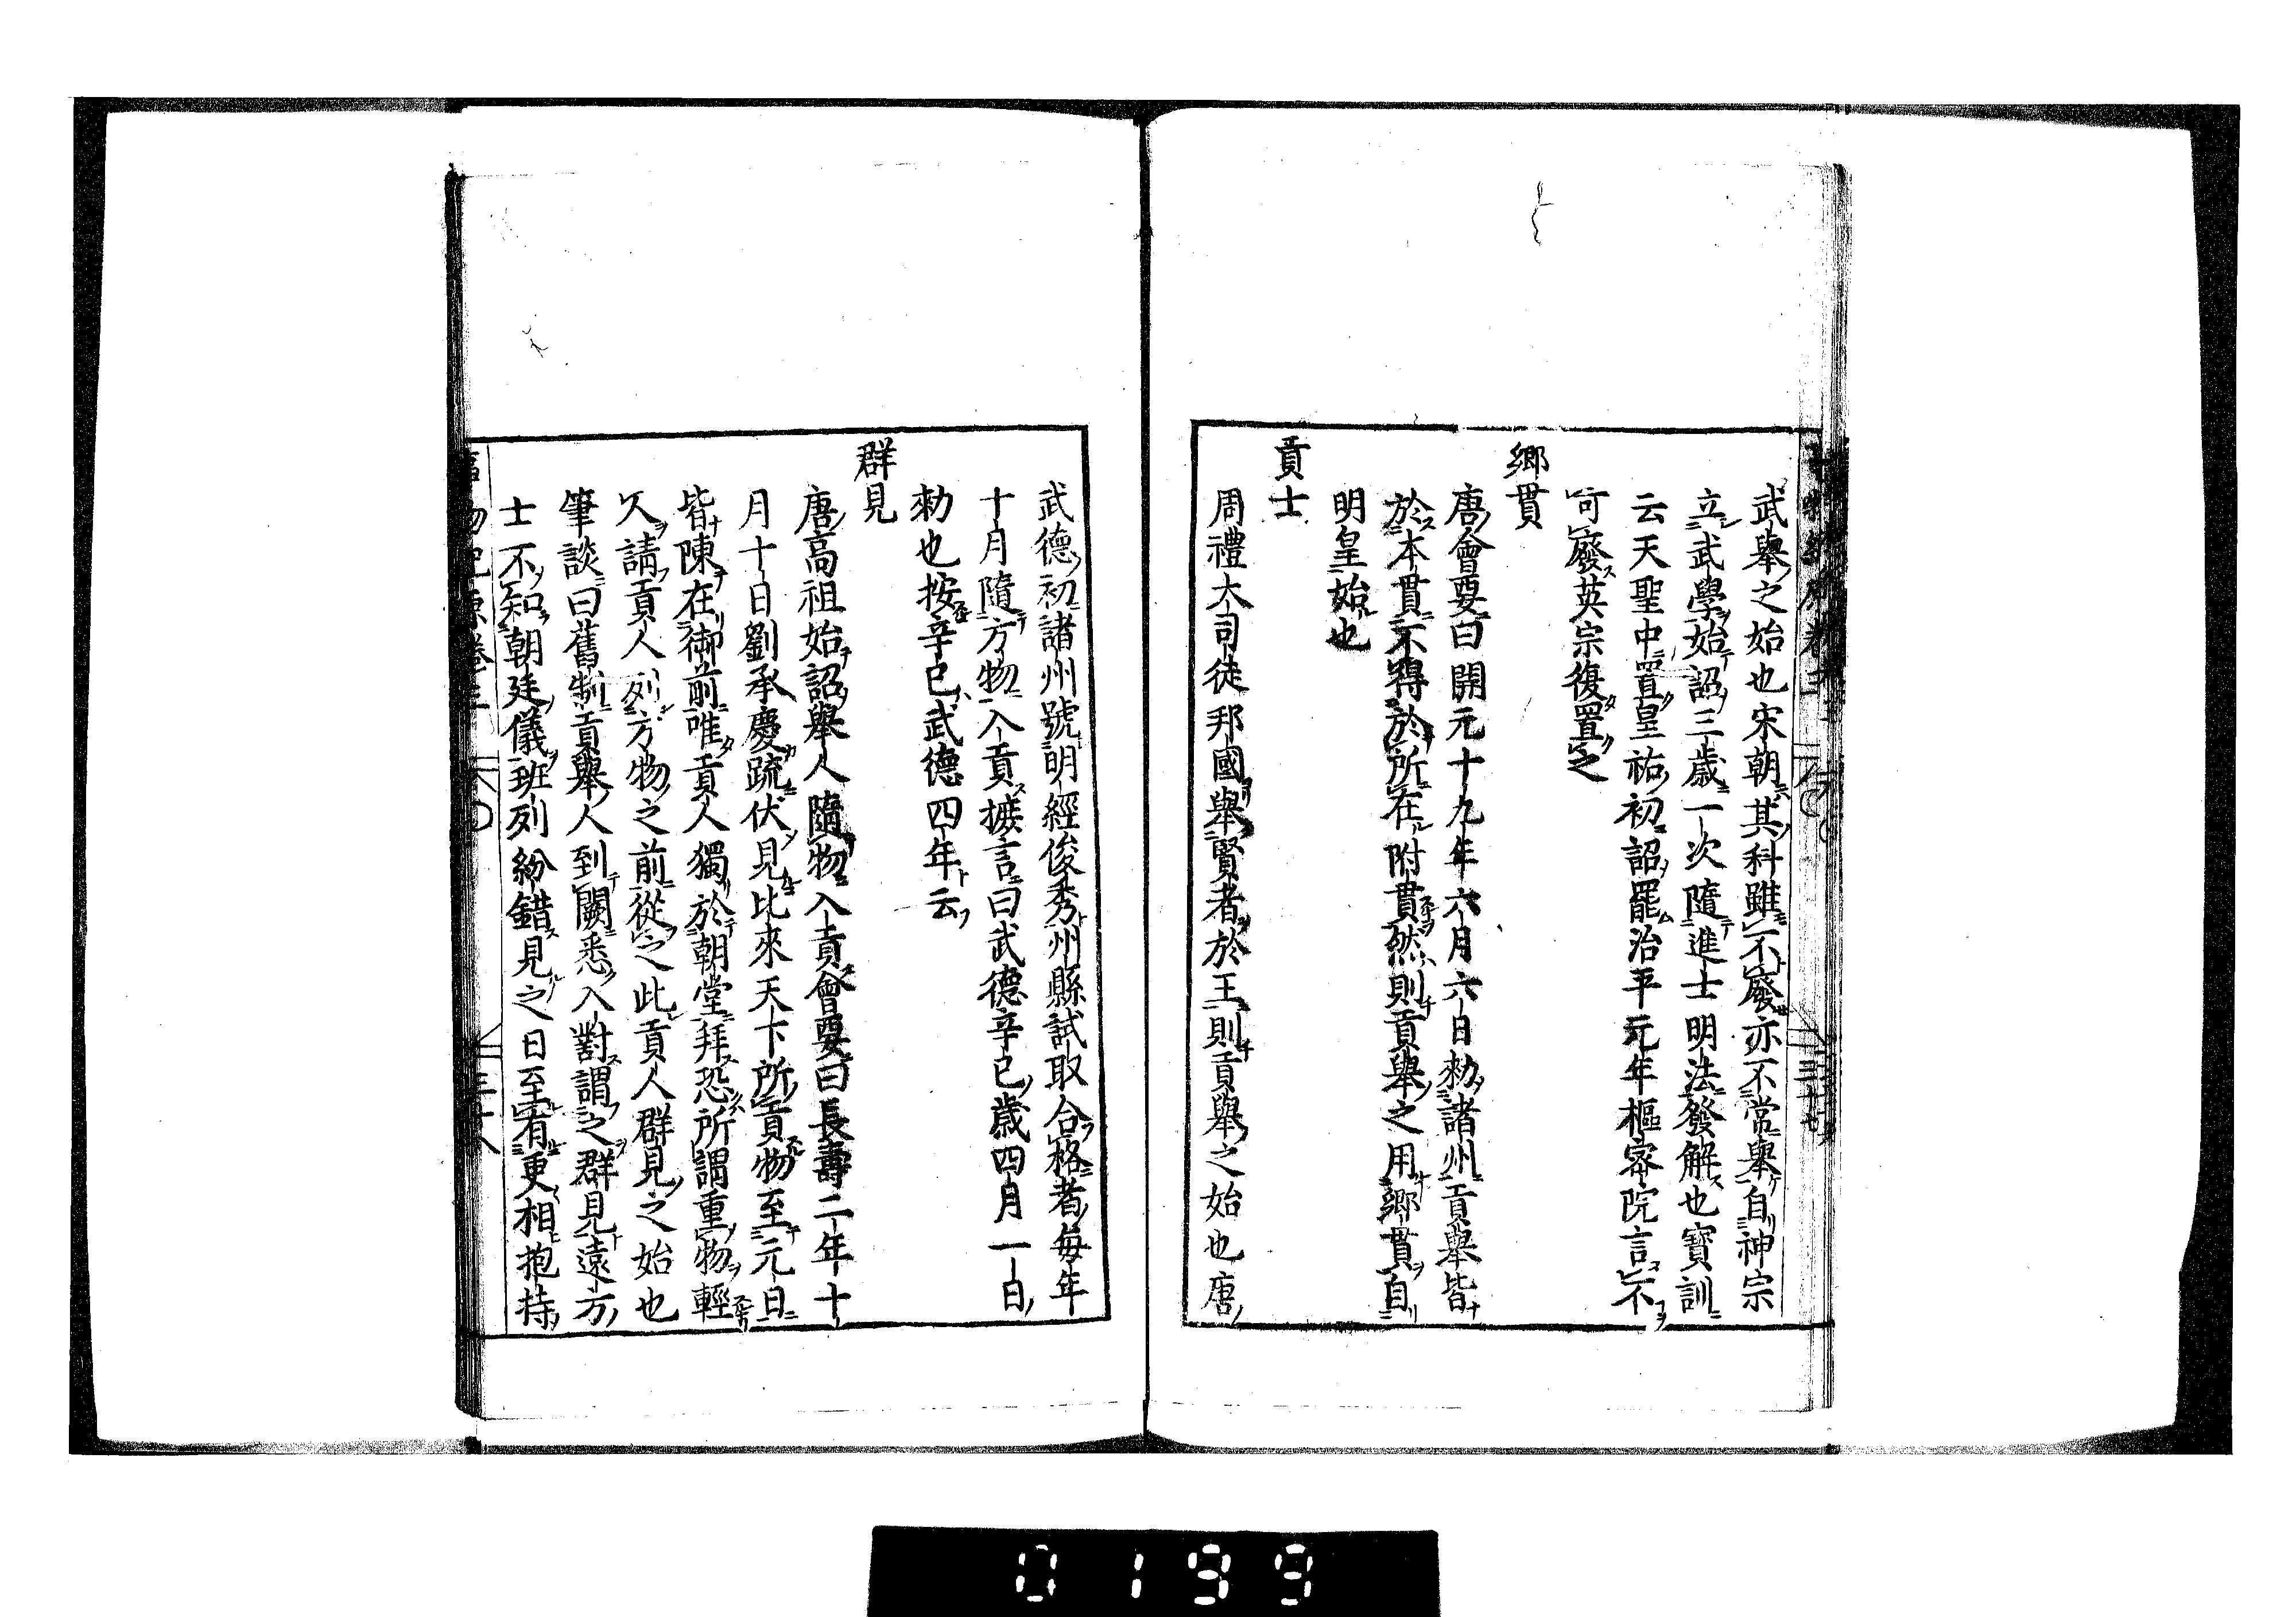 武舉之始也宋朝其科雖不廢亦不常舉自神宗
立武學始詔三歲一次隨進士明法發解也寶訓
云天聖中置皇祐初詔罷治平元年樞密院言不
可廢英宗復置之
鄉貫
唐會要曰開元十九年六月六日勑諸州貢舉皆
於本貫不得於所在附貫然則貢舉之用鄉貫自
明皇始也
貢士
周禮大司徒邦國舉賢者於王則貢舉之始也唐
武德初諸州號明經俊秀州縣試取合格者每年
十月隨方物入貢摭言曰武德辛巳歲四月一日
勑也按辛巳武德四年云
群見
唐高祖始詔舉人隨物入貢會要曰長壽二年十
月十日劉承慶疏伏見比來天下所貢物至元日
皆陳在御前唯貢人獨於朝堂拜恐所謂重物輕
人請貢人列方物之前從之此貢人群見之始也
筆談曰舊制貢舉人到闕悉入對謂之群見遠方
士不知朝廷儀班列紛錯見之日至有更相抱持
0199